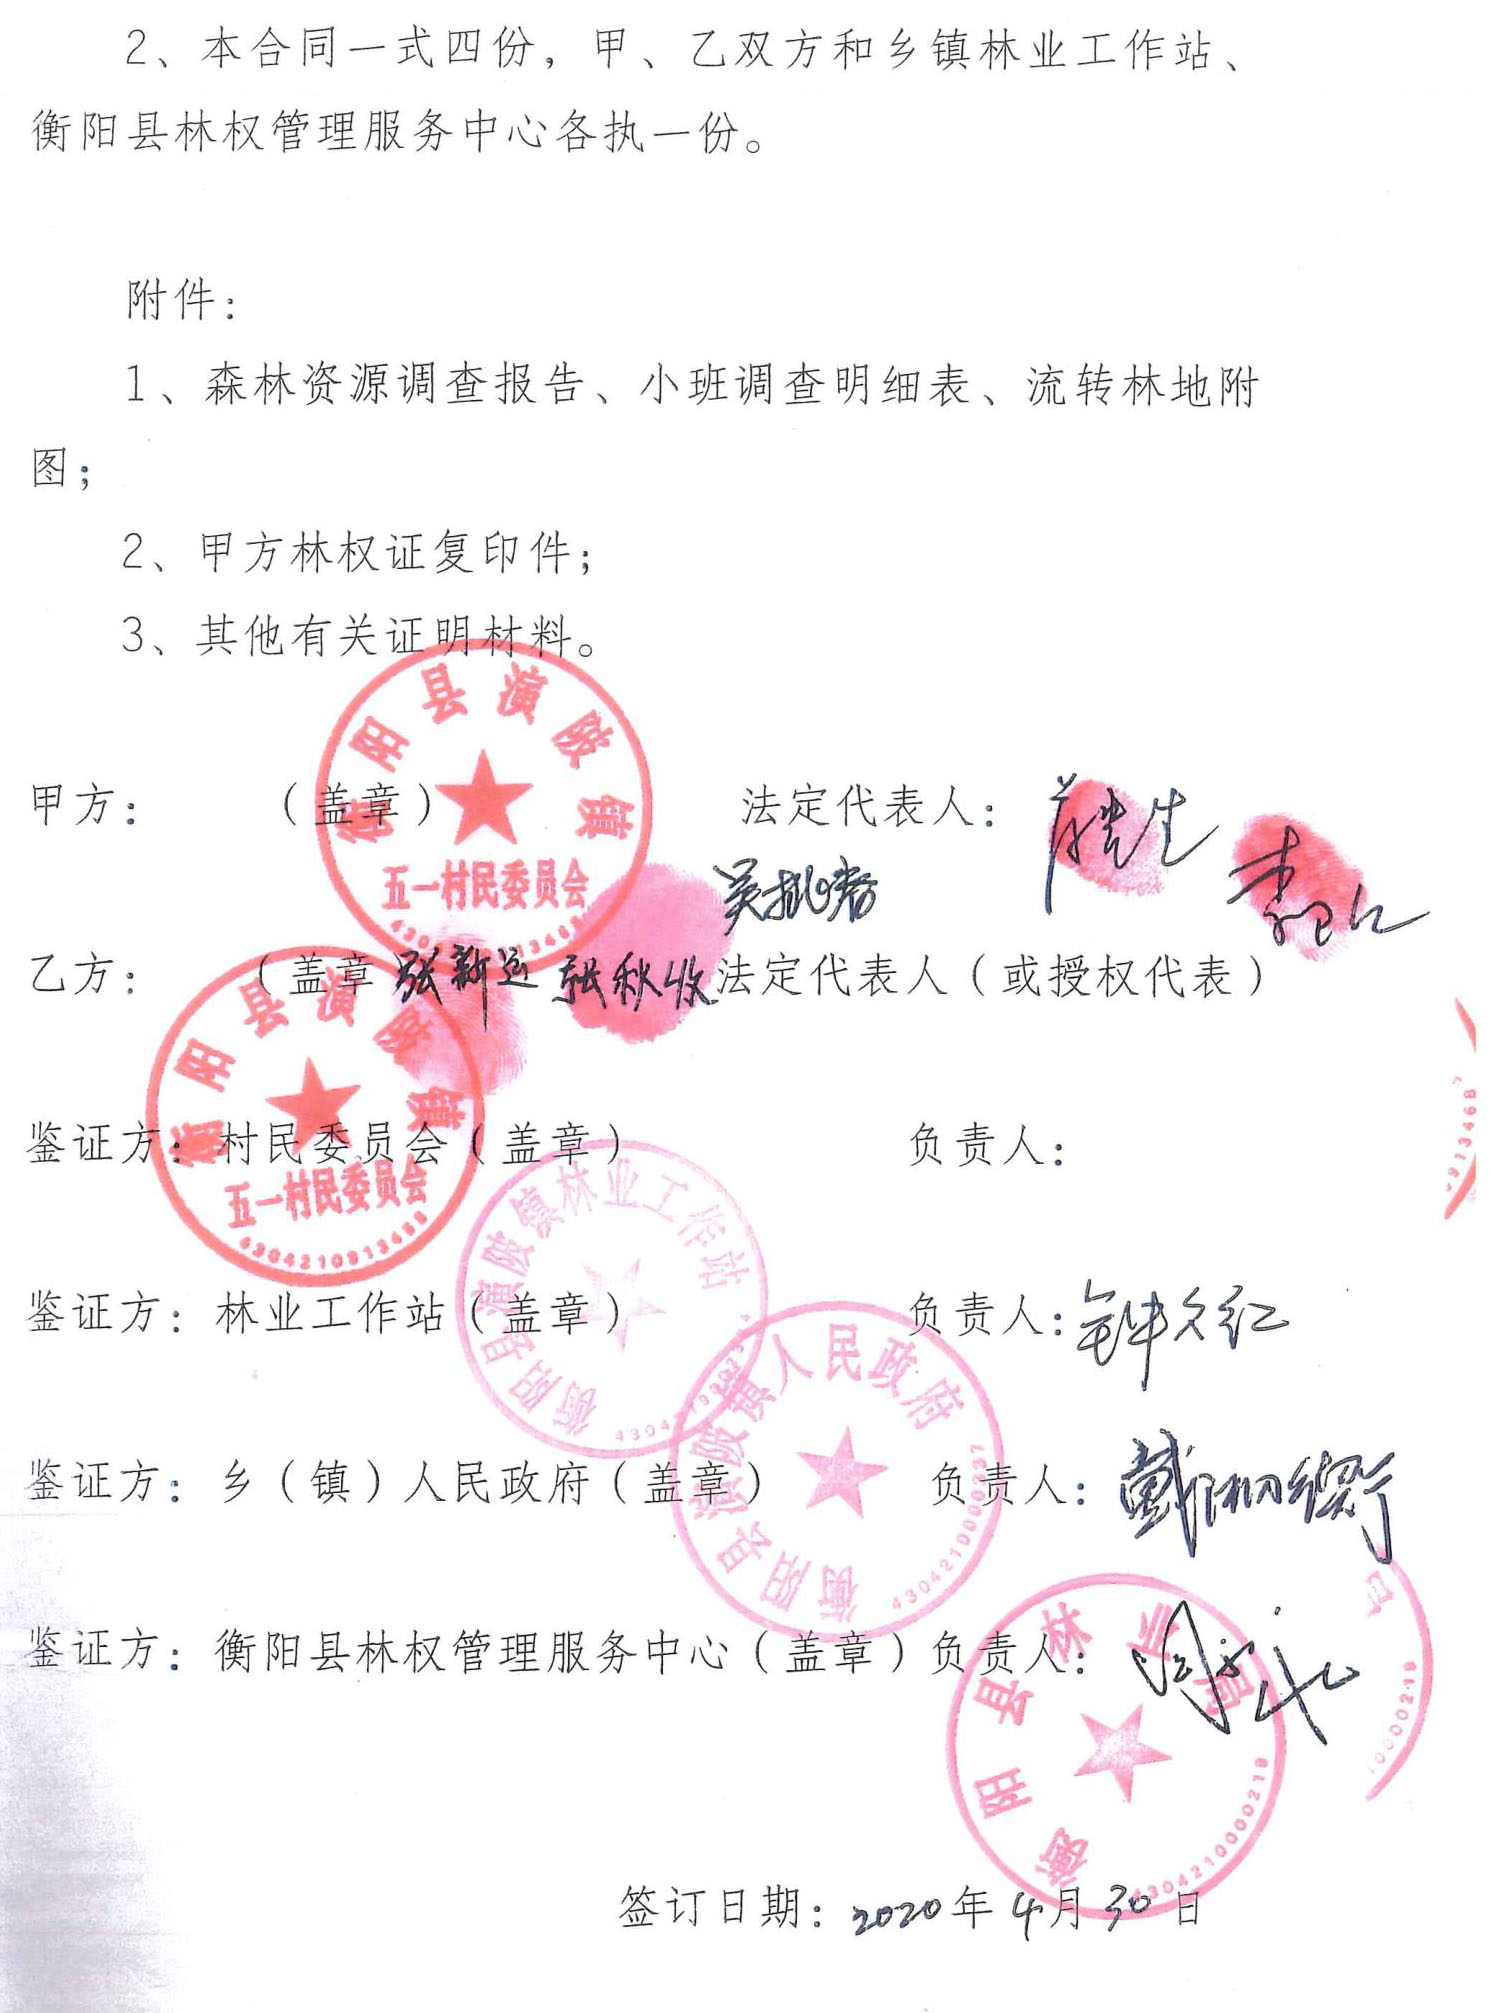 2、本合同一式四份，甲、乙双方和乡镇林业工作站、
衡阳县林权管理服务中心各执一份。
附件：
1、森林资源调查报告、小班调查明细表、流转林地附
图；
2、甲方林权证复印件；
3、其他有关证明材料。
衡阳县演陂镇
五一村民委员会
甲方： （盖章） 法定代表人：
乙方： （盖章 张新运 张秋收 法定代表人（或授权代表）
衡阳县演陂镇
五一村民委员会
4304210913468
鉴证方：村民委员会（盖章） 负责人：
衡阳县演陂镇林业工作站
鉴证方：林业工作站（盖章） 负责人：
衡阳县演陂镇人民政府
4304210000237
鉴证方：乡（镇）人民政府（盖章） 负责人：
鉴证方：衡阳县林权管理服务中心（盖章）负责人：
衡阳县林业局
4304210000219
10000219
签订日期：2020年4月30日